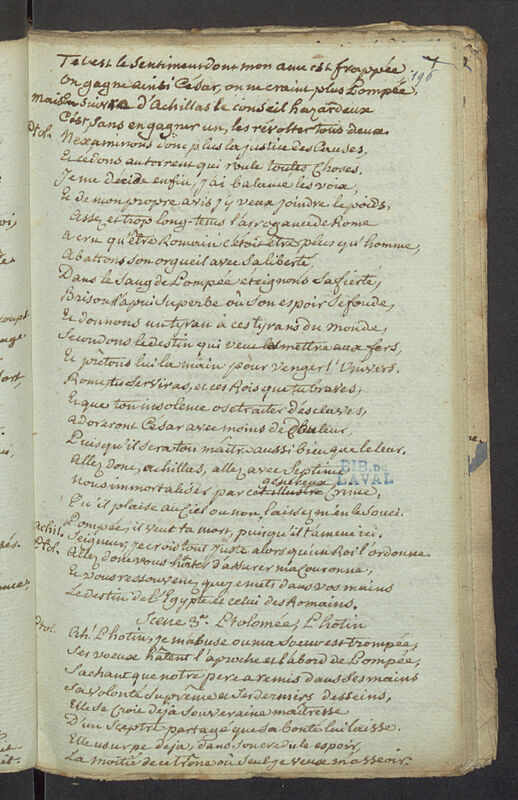 Tel est le Sentiment dont mon ame est frappée
On gagne ainsi César, on ne craint plus Pompée.
Mais Suivre d'Achillas le conseil hazardeux
C'est, sans en gagner un, les révolter tous deux.
Ptol. N'examinons donc plus la justice des Causes,
Et cédons au torrent qui roule toutes Choses.
Je me décide enfin, j'ai balancé les voix,
Et de mon propre avis j'y veux joindre le poids,
Assez et trop long-tems l'arrogance de Rome
A cru qu'être Romain c'etoit être plus qu'homme;
Abattons son orgueil avec Sa liberté,
Dans le Sang de Pompée éteignons Sa fierté,
Brisons l'apui Superbe où Son espoir Se fonde,
Et donnons un tyran à ces tyrans du monde,
Secondons le destin qui veut les mettre aux fers,
Et prêtons lui la main pour venger l'Univers.
Rome, tu Serviras, et ces Rois que tu braves,
Et que ton insolence ose traiter d'esclaves,
Adoreront César avec moins de douleur,
Puisqu'il Sera ton maître aussi bien que le leur.
Allez donc, achillas, allez avec Septime
Nous immortaliser par cet illustre généreux Crime,
Qu'il plaise au Ciel ou non, laissez m'en le Souci.
Pompée, il veut ta mort, puisqu'il t'amène ici.
Achil. Seigneur, je crois tout juste alors qu'un Roi l'ordonne
Ptol. Allez donc vous hâter d'assurer ma Couronne,
Et vous ressouvenez que je mets dans vos mains
Le destin de l'Egypte et celui des Romains.
Scene 3e. Ptolomée, Photin
Ptol. Ah! Photin, je m'abuse ou ma Soeur est trompée,
Ses voeux hâtent l'aproche et l'abord de Pompée,
Sachant que notre père a remis dans Ses mains
Sa volonté Suprême et Ses derniers desseins,
Elle se croit déjà Souveraine maîtresse
D'un Sceptre partagé que Sa bonté lui laisse.
Elle usurpe déjà, dans Son credule espoir,
La moitié de ce trône où Seul je veux m'asseoir.
196
BIB. DE
LAVAL